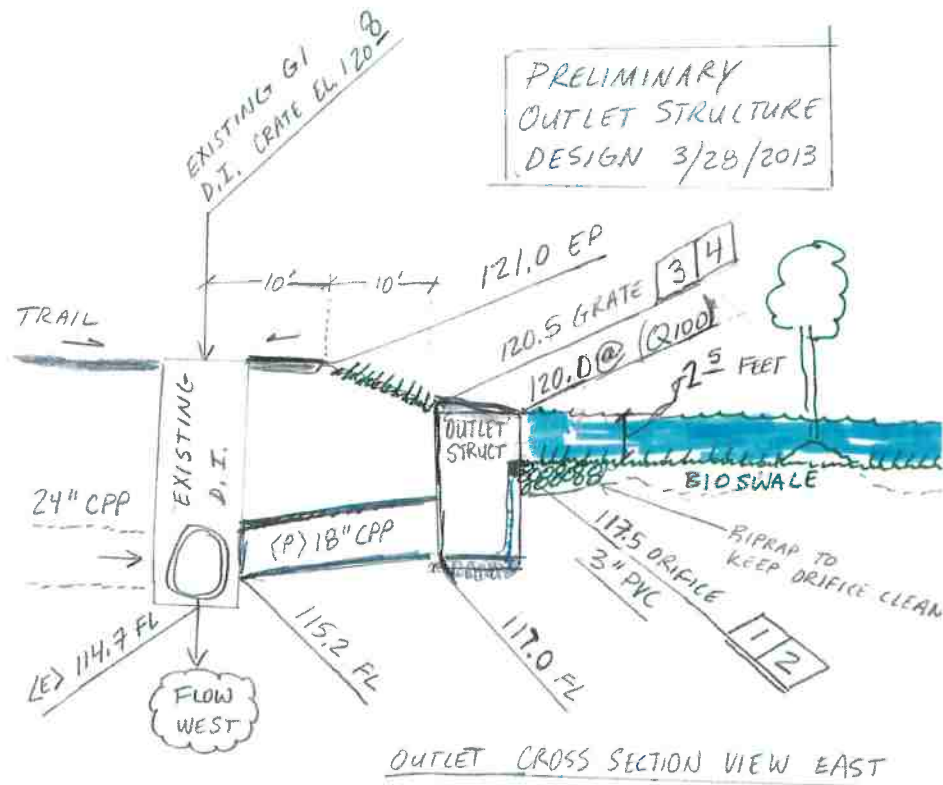 PRELIMINARY
OUTLET STRUCTURE
DESIGN 3/28/2013
EXISTING GI
D.I. GRATE EL. 120.8
10'
10'
121.0 EP
120.5 GRATE 3 4
120.0 @ (Q100)
2.5 FEET
TRAIL
EXISTING
D.I.
OUTLET
STRUCT
BIOSWALE
24" CPP
(P) 18" CPP
RIPRAP TO
KEEP ORIFICE CLEAN
117.5 ORIFICE
3" PVC
1 2
<E> 114.7 FL
115.2 FL
117.0 FL
FLOW
WEST
OUTLET CROSS SECTION VIEW EAST